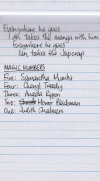 Everywhere he goes
I gh takes the manga with him
Everywhere he goes
I gh takes the
MAGIC NUMBERS
Five: Samantha Mumba
Four: Cheryl Tweedy
Three: Angela Eyton
Two: Honor Blackman
One: Judith Chalmers